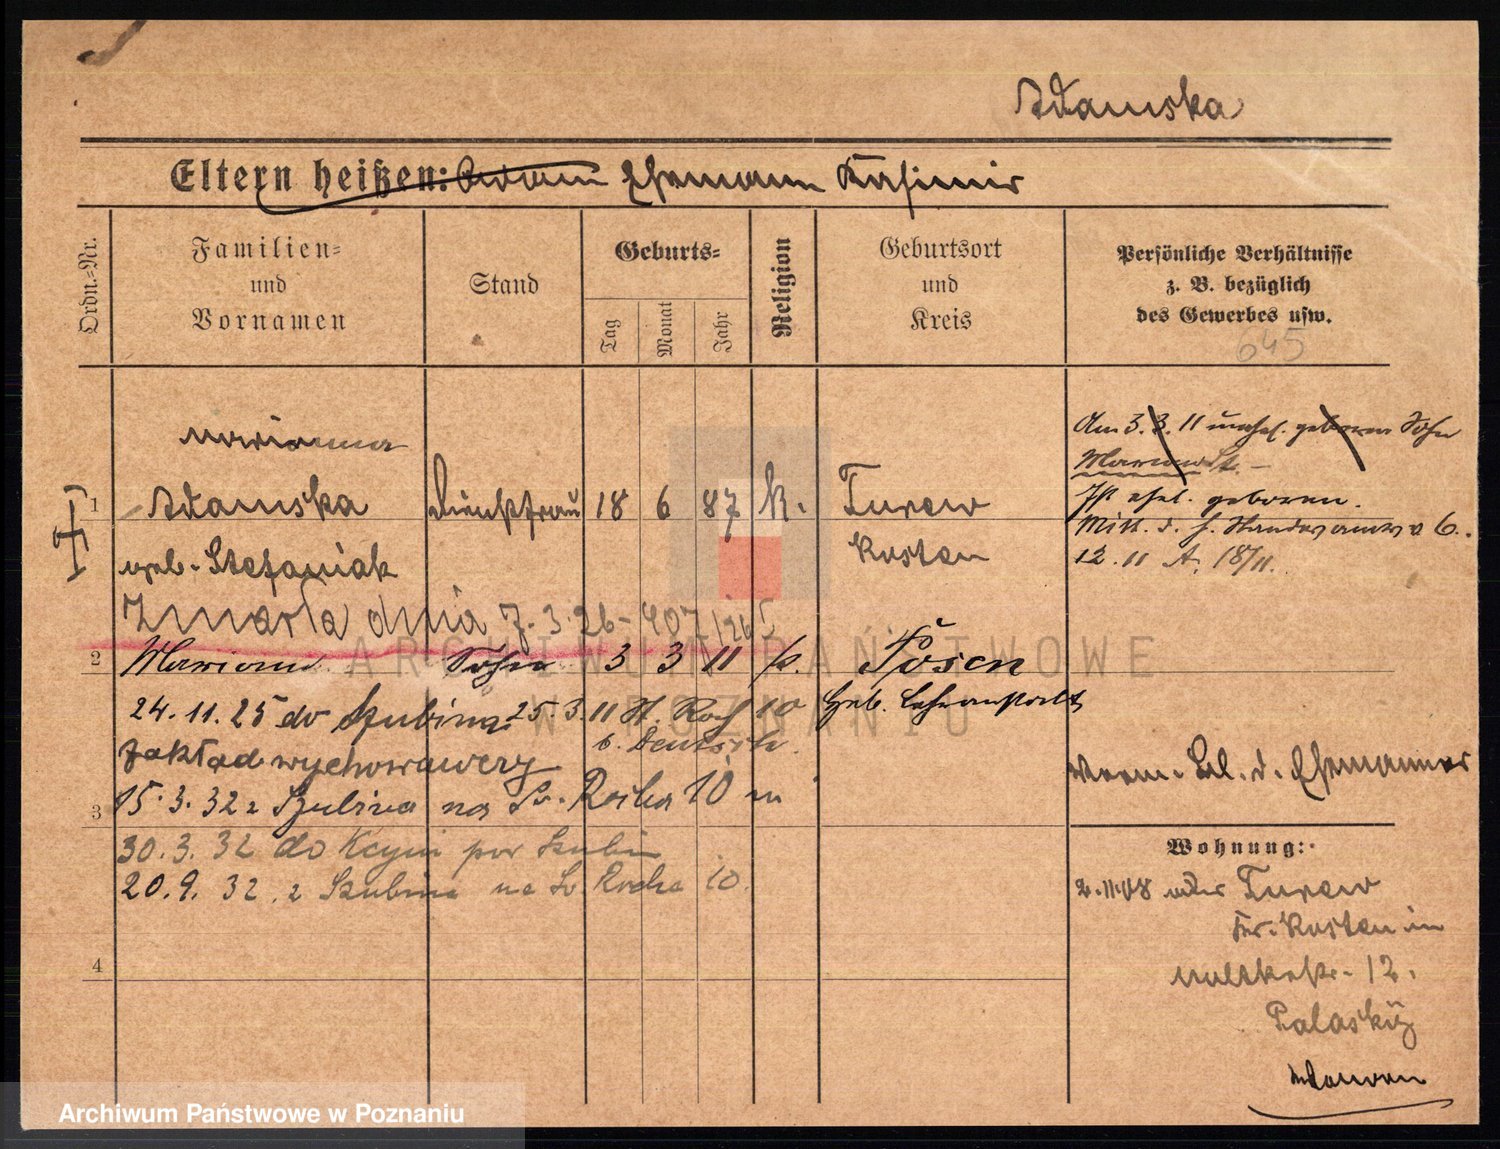 Adamska
Eltern heißen: Ehemann Kasimir
Ordn.-Nr.
Familien-
und
Vornamen
Stand
Geburts-
Tag
Monat
Jahr
Religion
Geburtsort
und
Kreis
Persönliche Verhältnisse
z. B. bezüglich
des Gewerbes usw.
645
Marianna
1 Adamska Dienstfrau 18 6 87 k. Turew
geb. Stefaniak Kosten
Zmarła dnia 7.3.26 - 407/26
Am 3.3.11 unehl. geboren Sohn
Marian St. -
Ist ehel. geboren.
Mitt. d. h. Standesamts v 6.
12.11 A. 18/11.
2 Marian Sohn 3 3 11 k. Posen
24.11.25 do Szubina 25.3.11 St. Roch 10
zakład wychowawczy b. Deutsch.
3 15.3.32 z Szubina na Sw. Rocha 10 m
30.3.32 do Kcyni pow Szubin
20.9.32 z Szubina na Sw Rocha 10.
4
Vorm. Bl. d. Ehemannes
Wohnung:
2.11.08 Turew
Kr. Kosten in
12.
Archiwum Państwowe w Poznaniu
ARCHIWUM PAŃSTWOWE
W POZNANIU